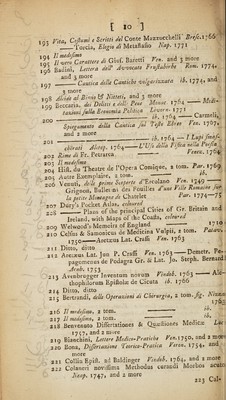 [ 10 ]
193 Vita, Costumi e Scritti del Conte Mazzuchelli Bresc. 1766
—— Tortia, Elogio di Metastasio Nap. 1771
194 Il medesimo
195 Il vero Carattere di Gius. Baretti Ven. and 3 more
196 Badini, Lettera dell' Avvocato Rom. 1774,
and 3 more
197 —— Cantica delle Cantiche vulgarizzata ib. 1774, and
3 more
198 & Nitteti, and 3 more
199 Beccaria, dei Delitti e delle Pene 1764 —— Medi-
tazioni sulla Economia Politica 1771
200 —— ib. 1764, — Carmeli,
Spiegamento della Cantica sul Testo Ebreo Ven. 1767,
and 2 more
201 —— ib. 1764 — I Lupi
1764 — L'Uso della Fisica nella Poesia
Venez. 1764
202 Rime di Fr. Petrarca
203 Il medesimo
204 Hist. du Theatre de l'Opera Comique, 2 tom. Par. 1769
205 Autre Exemplaire, 2 tom. ib.
206 Venuti, delle prime Scoperte d'Ercolano Ven. 1749
Grignon, Bulletin des Fouilles d'une Ville Romaine sur
la petite Montagne du Chatelet Par. 1774—75
207 Dury's Pocket Atlas, coloured
208 —— Plans of the principal Cities of Gr. Britain and
Ireland, with Maps of the Coasts, coloured
209 Welwood's Memoirs of England 1710
210 Celsus & Samonicus de Medicina Vulpii, 2 tom. Patav.
1750 — Aretæus Lat. Crassi Ven. 1763
211 Ditto, ditto
212 Aretæus Lat. Jun P. Crassi Ven. 1763 — Demetr. Pe-
pagomenus de Podagra Gr. & Lat. Jo. Steph. Bernard
Arnh. 1753
213 Avenbrugger Inventum novum Vindob. 1763 — Ala-
thophilorum Epistolæ de Cicuta ib. 1766
214 Ditto, ditto
215 Bertrandi, delle Operazioni di Chirurgia, 2 tom. fig. Nizza
1763
216 Il medesimo, 2 tom. ib.
217 Il medesimo, 2 tom. ib.
218 Benvenuto Dissertationes & Quæstiones Medicæ Luc.
1757, and 2 more
219 Bianchini, Lettere Medico-Pratiche Ven. 1750, and 2 more
220 Bona, Dissertazione Teorico-Pratica Veron. 1754, and
more
221 Collin Epist. ad Baldinger Vindob. 1764, and 2 more
222 Colaneri novissima Methodus curandi Morbos acutos
Neap. 1747, and 2 more
223 Cal-